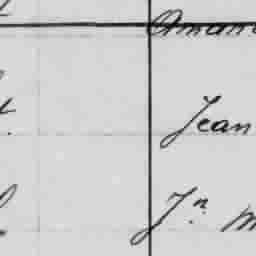 Aman
Jean
Jn M